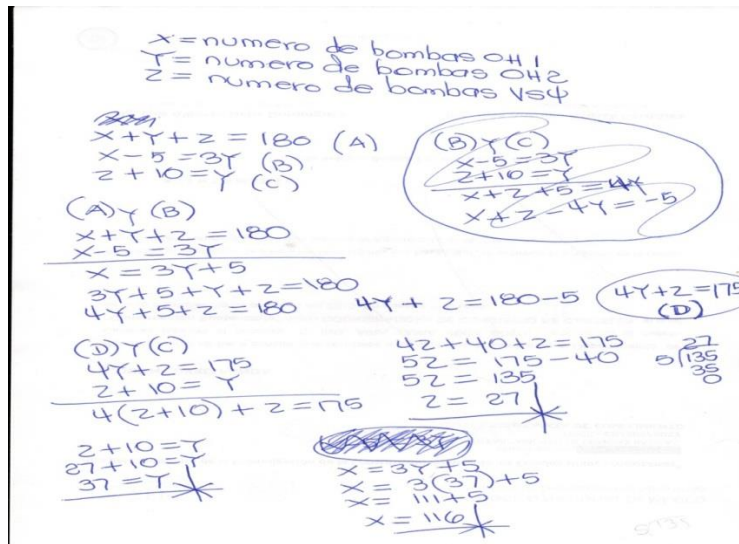 X = numero de bombas OH1
Y = numero de bombas OH2
Z = numero de bombas VS4
X + Y + Z = 180 (A)
X - 5 = 3Y (B)
Z + 10 = Y (C)
(B) Y (C)
X - 5 = 3Y
Z + 10 = Y
X + Z + 5 = 4Y
X + Z - 4Y = -5
(A) Y (B)
X + Y + Z = 180
X - 5 = 3Y
X = 3Y + 5
3Y + 5 + Y + Z = 180
4Y + 5 + Z = 180
4Y + Z = 180 - 5
4Y + Z = 175
(D)
(D) Y (C)
4Y + Z = 175
Z + 10 = Y
4(Z + 10) + Z = 175
4Z + 40 + Z = 175
5Z = 175 - 40
5Z = 135
Z = 27
27
5 135
35
0
Z + 10 = Y
27 + 10 = Y
37 = Y
X = 3Y + 5
X = 3(37) + 5
X = 111 + 5
X = 116